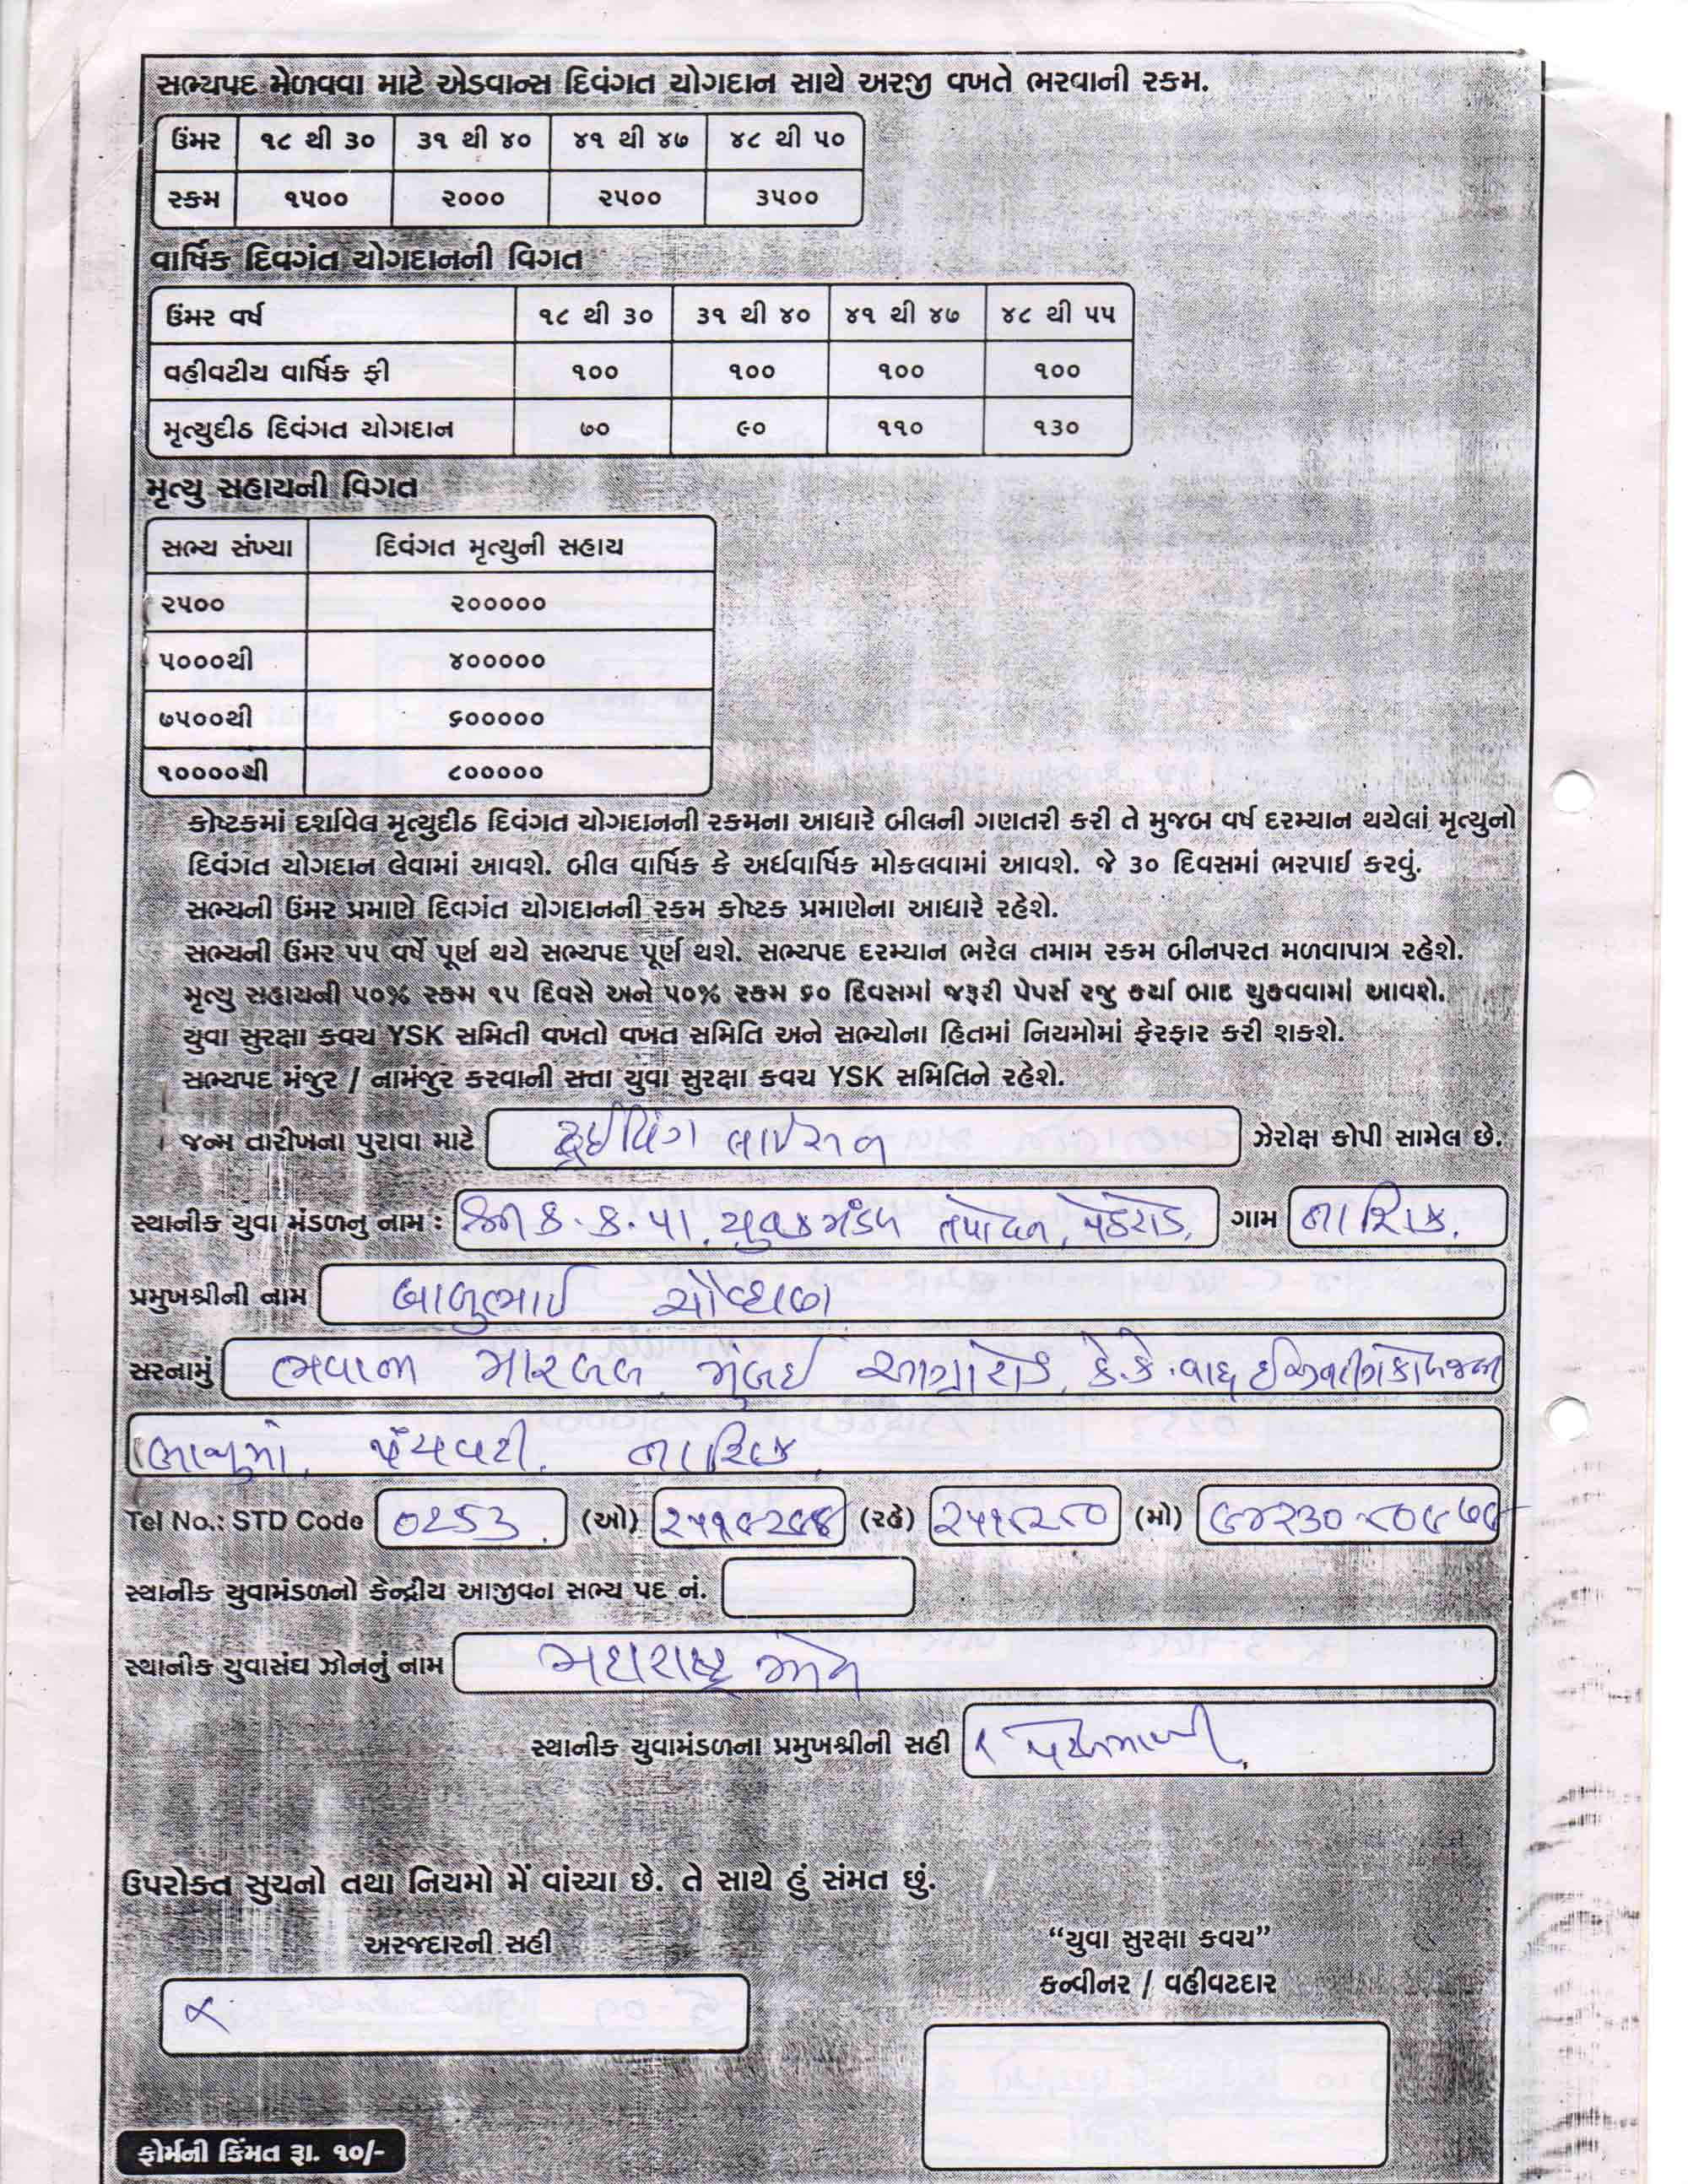 સભ્યપદ મેળવવા માટે એડવાન્સ દિવંગત યોગદાન સાથે અરજી વખતે ભરવાની રકમ.
ઉંમર ૧૮ થી ૩૦ ૩૧ થી ૪૦ ૪૧ થી ૪૭ ૪૮ થી ૫૦
રકમ ૧૫૦૦ ૨૦૦૦ ૨૫૦૦ ૩૫૦૦
વાર્ષિક દિવગંત યોગદાનની વિગત
ઉંમર વર્ષ ૧૮ થી ૩૦ ૩૧ થી ૪૦ ૪૧ થી ૪૭ ૪૮ થી ૫૫
વહીવટીય વાર્ષિક ફી ૧૦૦ ૧૦૦ ૧૦૦ ૧૦૦
મૃત્યુદીઠ દિવંગત યોગદાન ૭૦ ૯૦ ૧૧૦ ૧૩૦
મૃત્યુ સહાયની વિગત
સભ્ય સંખ્યા દિવંગત મૃત્યુની સહાય
૨૫૦૦ ૨૦૦૦૦૦
૫૦૦૦થી ૪૦૦૦૦૦
૭૫૦૦થી ૬૦૦૦૦૦
૧૦૦૦૦થી ૮૦૦૦૦૦
કોષ્ટકમાં દર્શાવેલ મૃત્યુદીઠ દિવંગત યોગદાનની રકમના આધારે બીલની ગણતરી કરી તે મુજબ વર્ષ દરમ્યાન થયેલાં મૃત્યુનો
દિવંગત યોગદાન લેવામાં આવશે. બીલ વાર્ષિક કે અર્ધવાર્ષિક મોકલવામાં આવશે. જે ૩૦ દિવસમાં ભરપાઈ કરવું.
સભ્યની ઉંમર પ્રમાણે દિવગંત યોગદાનની રકમ કોષ્ટક પ્રમાણેના આધારે રહેશે.
સભ્યની ઉંમર ૫૫ વર્ષે પૂર્ણ થયે સભ્યપદ પૂર્ણ થશે. સભ્યપદ દરમ્યાન ભરેલ તમામ રકમ બીનપરત મળવાપાત્ર રહેશે.
મૃત્યુ સહાયની ૫૦% રકમ ૧૫ દિવસે અને ૫૦% રકમ ૬૦ દિવસમાં જરૂરી પેપર્સ રજુ કર્યા બાદ ચુકવવામાં આવશે.
યુવા સુરક્ષા કવચ YSK સમિતી વખતો વખત સમિતિ અને સભ્યોના હિતમાં નિયમોમાં ફેરફાર કરી શકશે.
સભ્યપદ મંજુર / નામંજુર કરવાની સત્તા યુવા સુરક્ષા કવચ YSK સમિતિને રહેશે.
જન્મ તારીખના પુરાવા માટે ડ્રાઈવિંગ લાઈસન ઝેરોક્ષ કોપી સામેલ છે.
સ્થાનીક યુવા મંડળનુ નામ : ક. ક. પા. યુવક મંડળ તપોવન, પેઠરોડ, ગામ નાશિક.
પ્રમુખશ્રીની નામ બાબુભાઈ ચૌવ્હાણ
સરનામું ભવાની મારબલ, મુંબઈ આગ્રા રોડ, કે.કે. વાઘ
બાજુમાં, પંચવટી, નાશિક
Tel No.: STD Code 0253 (ઓ) (રહે) (મો)
સ્થાનીક યુવામંડળનો કેન્દ્રીય આજીવન સભ્ય પદ નં.
સ્થાનીક યુવાસંઘ ઝોનનું નામ મહારાષ્ટ્ર ઝોન
સ્થાનીક યુવામંડળના પ્રમુખશ્રીની સહી
ઉપરોક્ત સુચનો તથા નિયમો મેં વાંચ્યા છે. તે સાથે હું સંમત છું.
અરજદારની સહી
“યુવા સુરક્ષા કવચ”
કન્વીનર / વહીવટદાર
ફોર્મની કિંમત રૂા. ૧૦/-